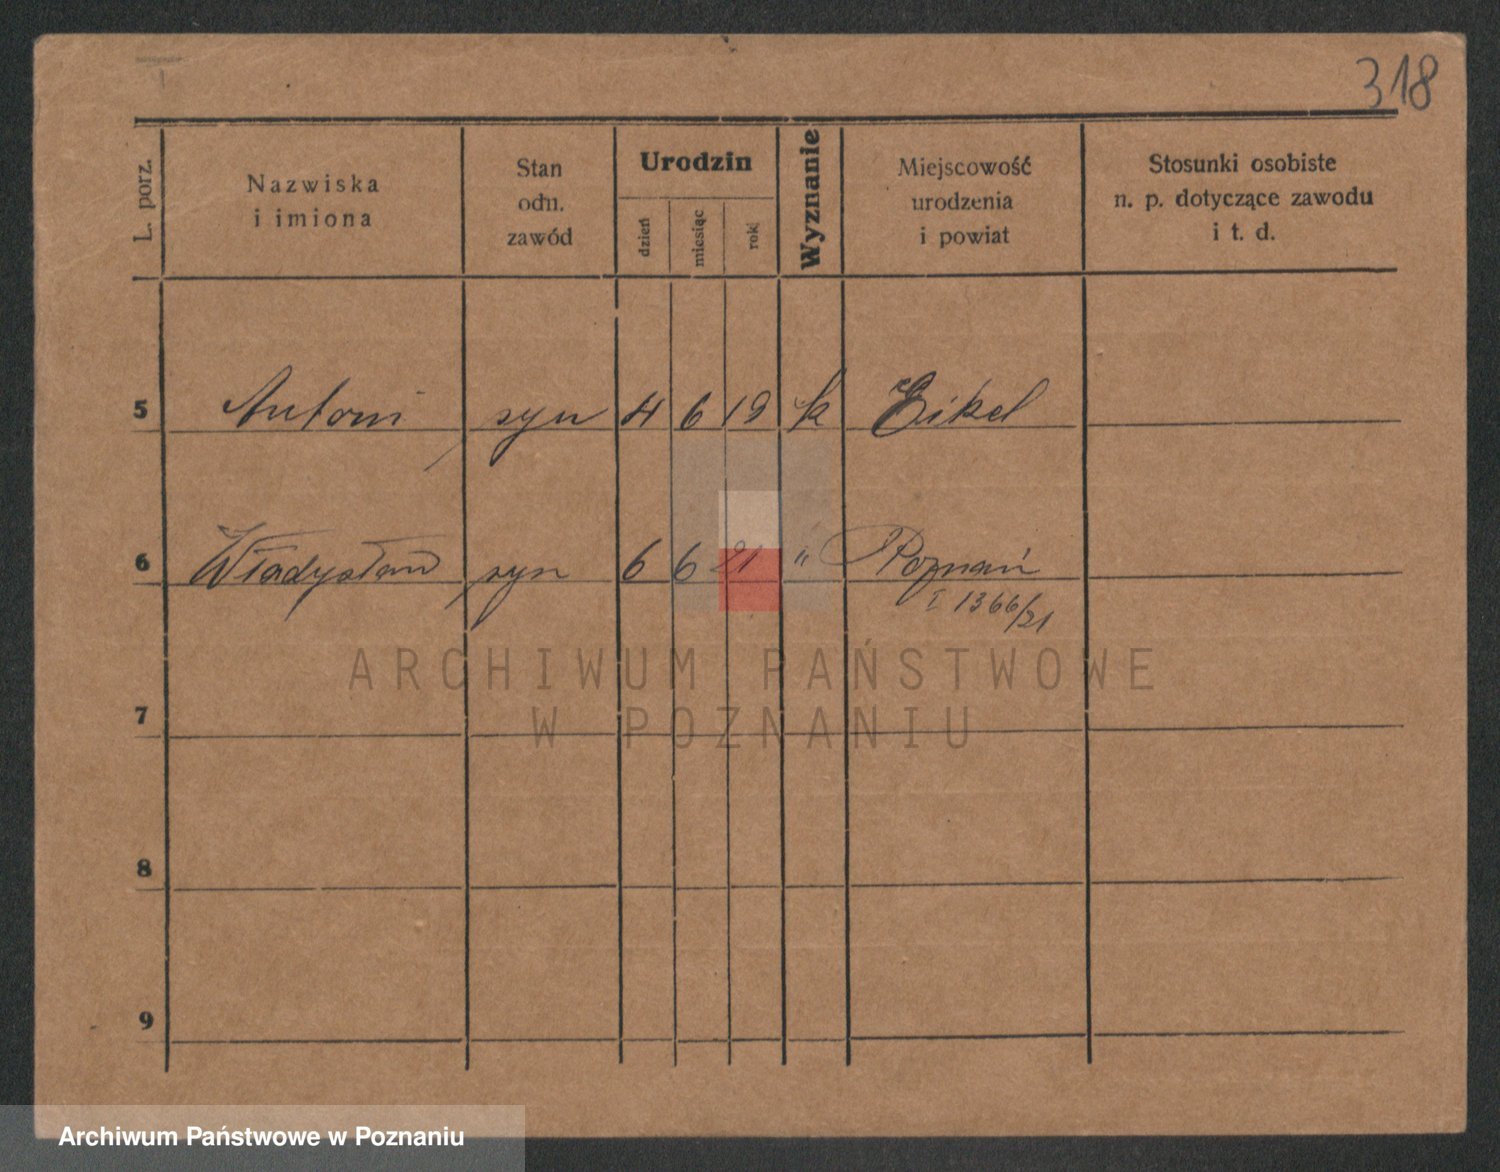 318
L. porz.
Nazwiska
i imiona
Stan
odn.
zawód
Urodzin
dzień
miesiąc
rok
Wyznanie
Miejscowość
urodzenia
i powiat
Stosunki osobiste
n. p. dotyczące zawodu
i t. d.
5 Antoni syn 4 6 19 k Eikel
6 Władysław syn 6 6 21 " Poznań
I 1366/21
ARCHIWUM PAŃSTWOWE
W POZNANIU
7
8
9
Archiwum Państwowe w Poznaniu